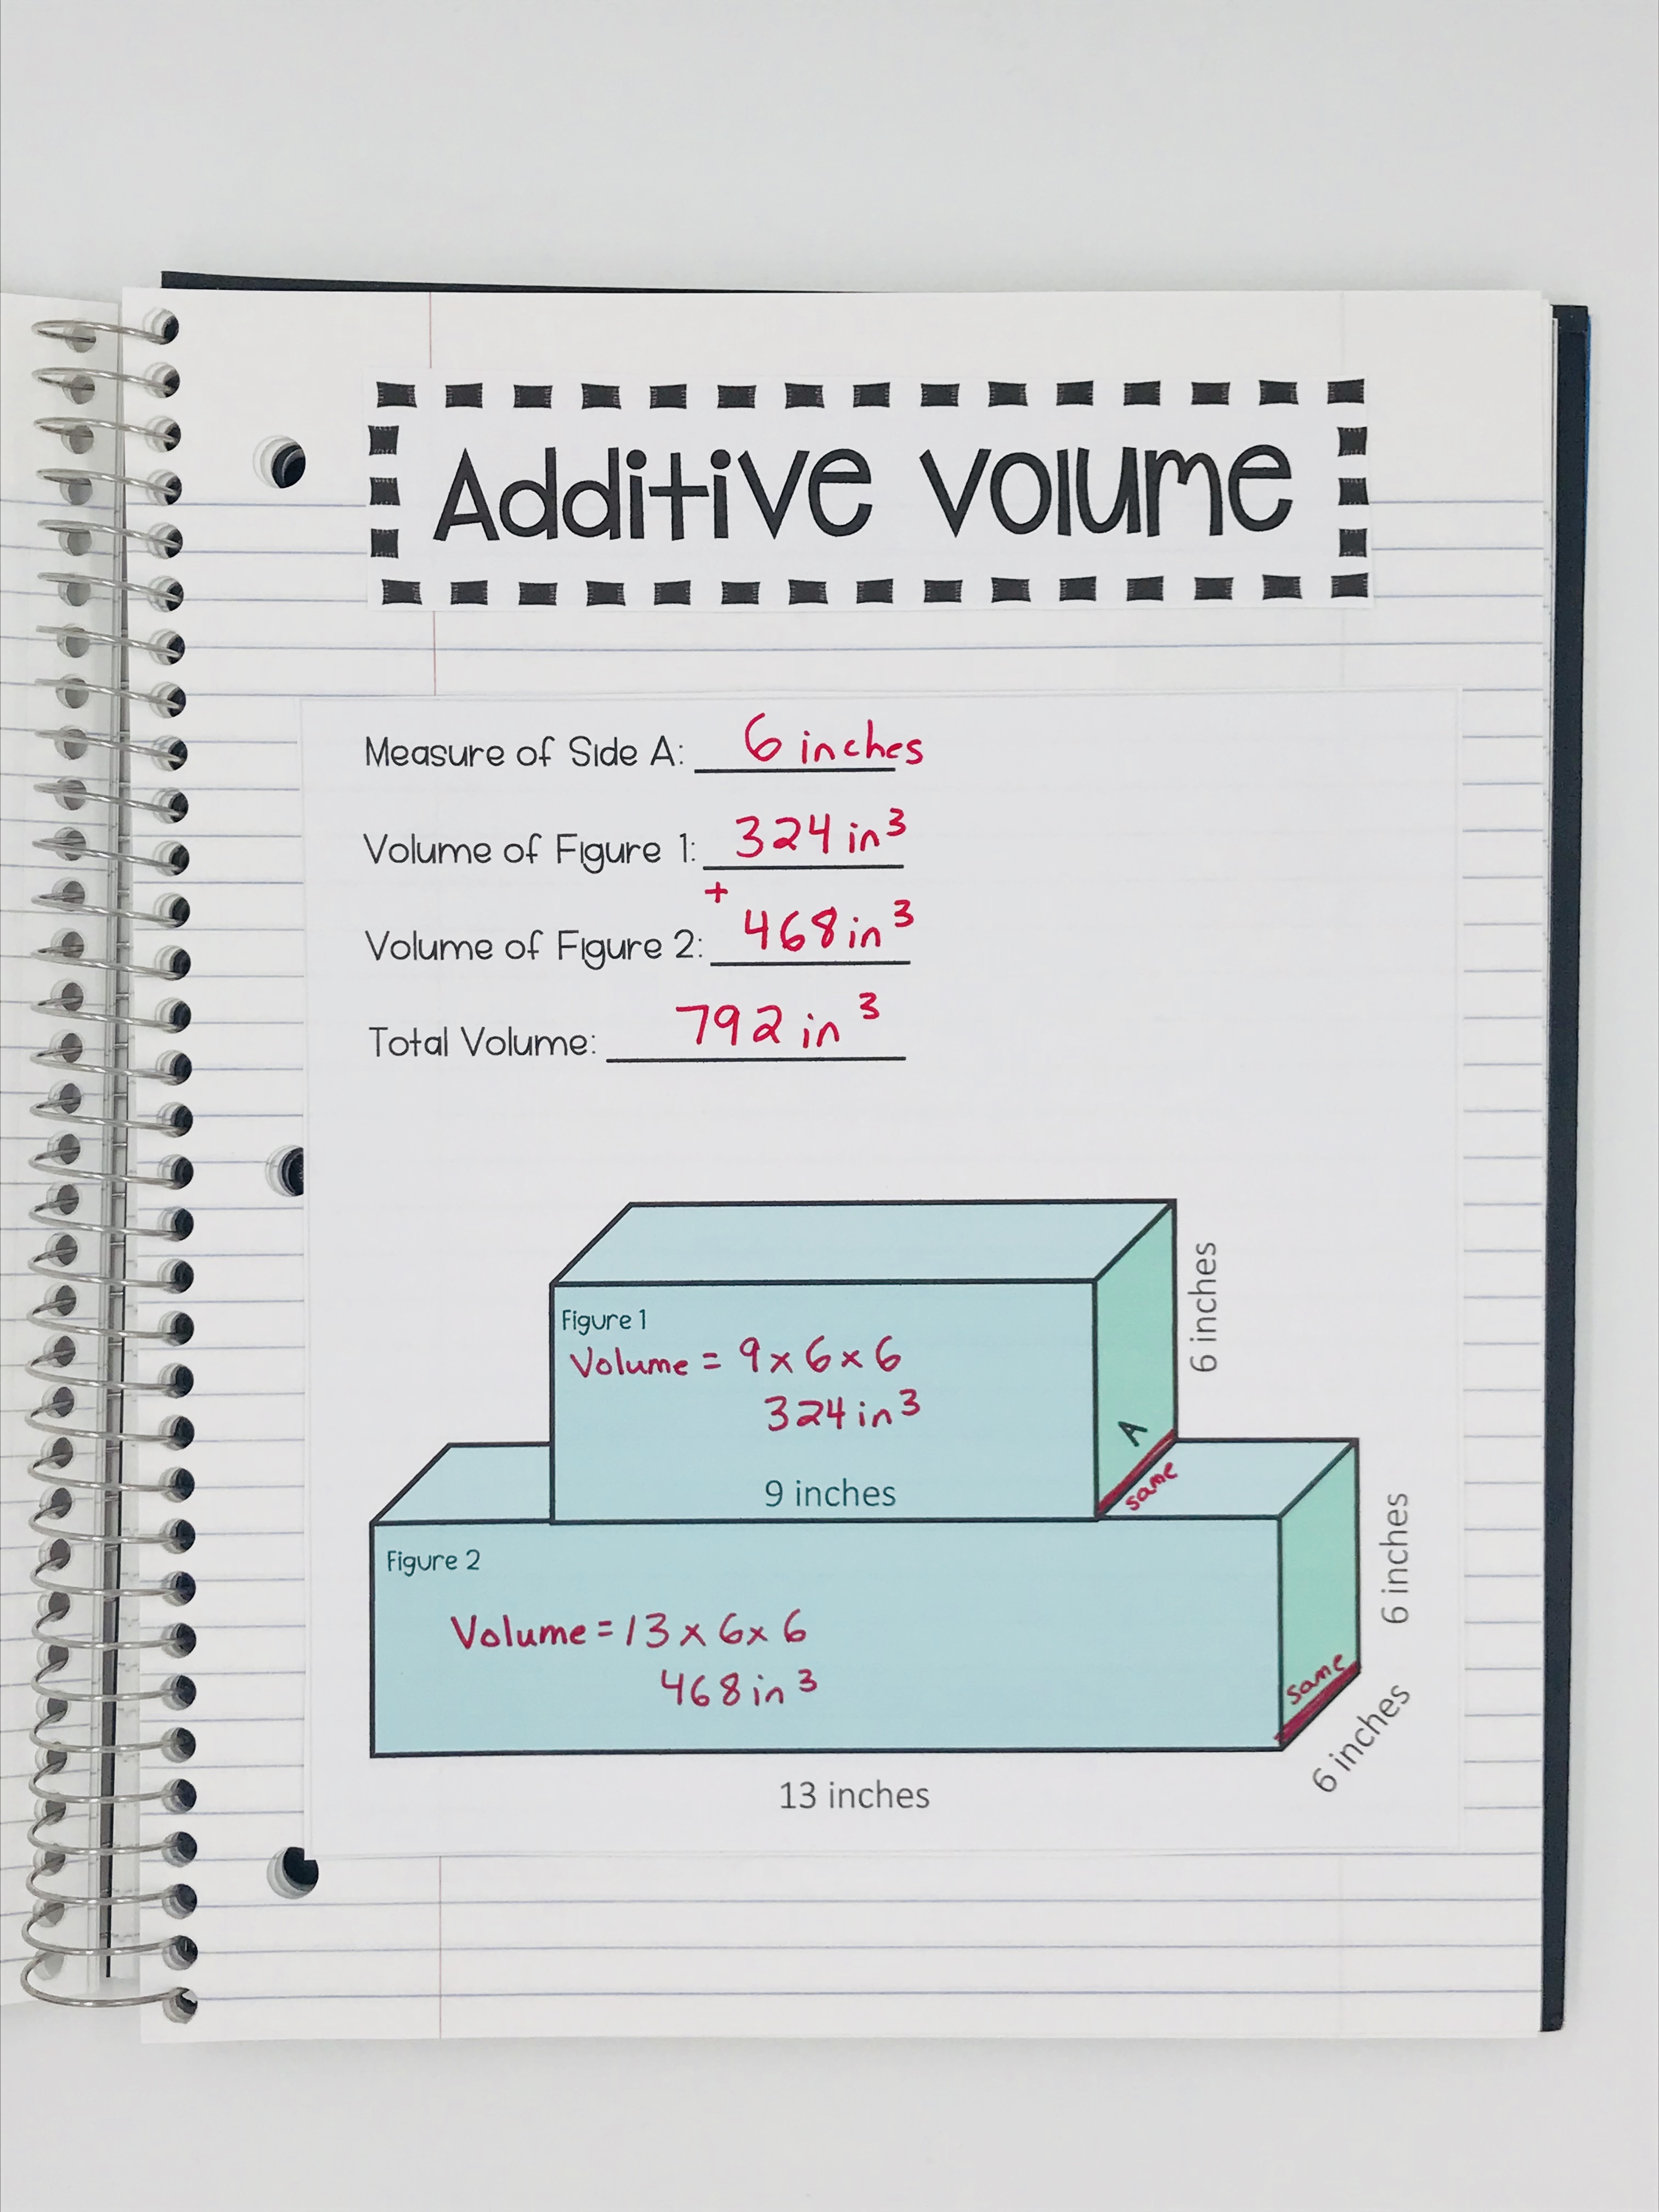 Additive Volume
Measure of Side A: 6 inches
Volume of Figure 1: 324 in³
+
Volume of Figure 2: 468 in³
Total Volume: 792 in³
Figure 1
Volume = 9 x 6 x 6
324 in³
9 inches
6 inches
A
same
Figure 2
Volume = 13 x 6 x 6
468 in³
6 inches
same
6 inches
13 inches